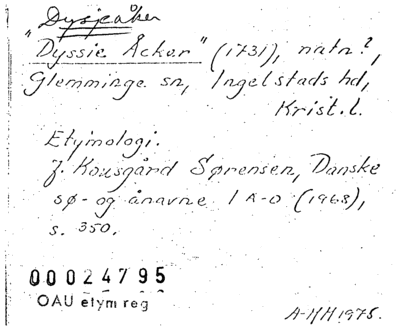 Dysjeåker
"Dyssie Åcker" (1731), natn?,
Glemminge sn, Ingelstads hd,
Krist.l.
Etymologi.
J. Kousgård Sørensen, Danske
sø- og ånavne 1 A-D (1968),
s. 350.
00024795
OAU etym reg
A-HH 1975.